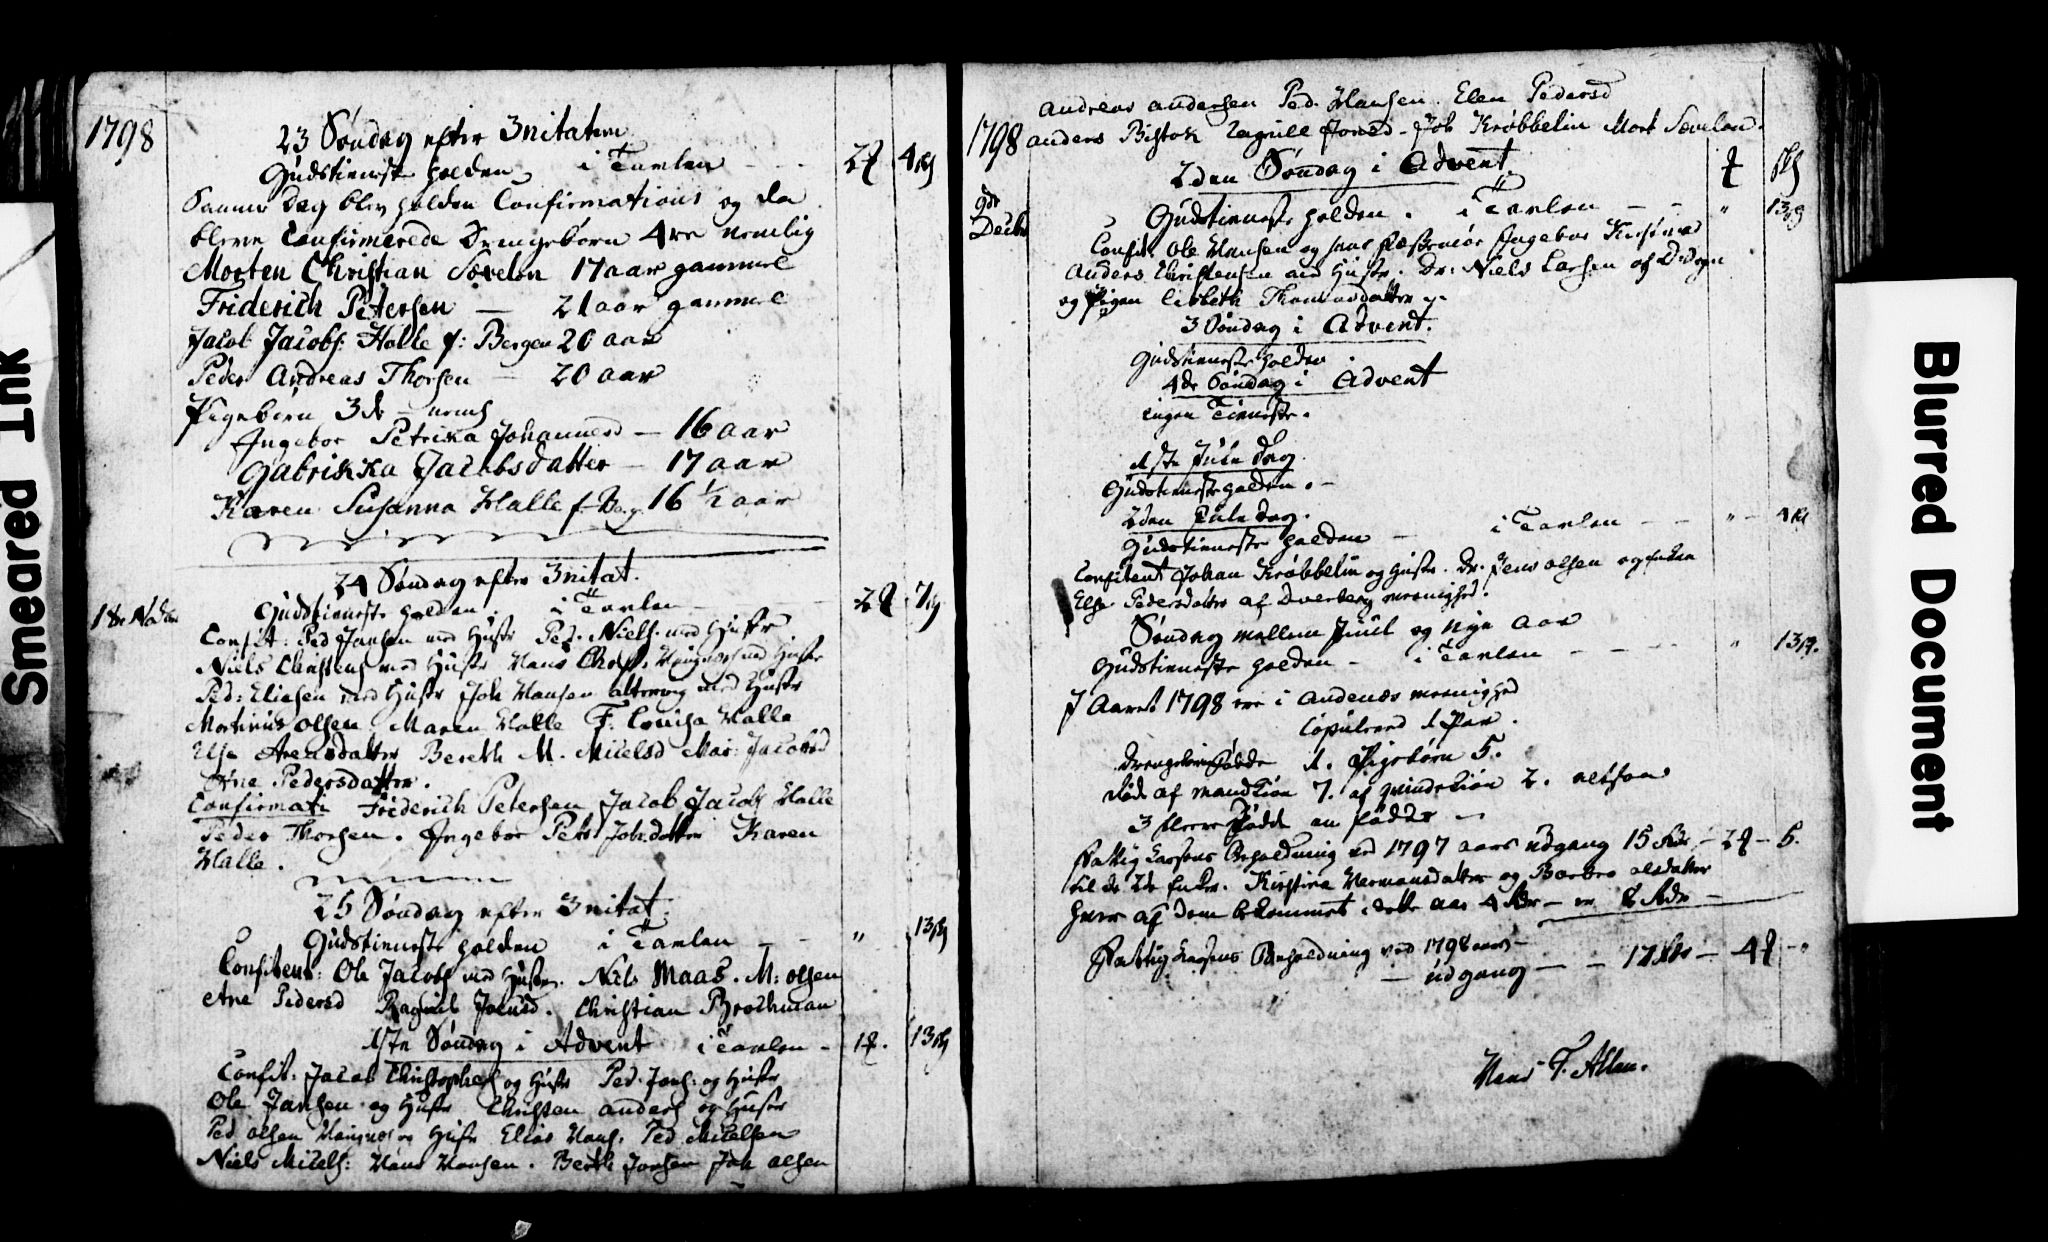 Smeared Ink
1798
23 Søndag efter 3nitatem
Gudstieneste holden i Tavlen - - - 2 4 s
Samme Dag blev holden Confirmations og da
bleve Confirmerede Drengebørn 4re nemlig
Morten Christian Sørelen 17 aar gammel
Friderich Petersen — 21 aar gammel
Jacob Jacobs: Halle f: Bergen 20 aar
Peder Andreas Thorsen — 20 aar
Pigebørn 3de nemlg
Ingebor Petrika Johannesd — 16 aar
Gabrikka Jacobsdatter — 17 aar
Karen Susanna Halle f. Berg. 16 1/2 aar
24 Søndag efter 3nitat.
18 Nov
Gudstieneste holden. i Tavlen 2 7
Confit: Ped Jansen med Hustr Ped. Niels. med Hustr
Niels Christens med Hustr Hans med Hustr
Ped: Eliesen med Hustr Joh Hansen med Hustr
Mortinus Olsen Maren Halle F. Lovisa Halle
Else Arensdatter Bereth M. Mikelsd Mar: Jacobsd
Ane Pedersdatter.
Confirmati Friderich Petersen Jacob Jacobs Halle
Peder Thorsen. Ingebor Petr Johsdatter Karen
Halle.
25 Søndag efter 3nitat.
Gudstieneste holden i Tavlen - - " 13 s
Confitent: Ole Jacobs med Hustr. Niels Maas. M: Olsen
Ane Pedersd Ragnil Joensd. Christian Brochman
1ste Søndag i Advent i Tavlen - 1 . 13 s
Confit: Jacob Christophers og Hustr Ped. Jans. og Hustr
Ole Jansen og Hustr Christen Anders og Hustr
Ped Olsen og Hustr Elias Hans. Ped Mikelsen
Niels Mikels: Hans Hansen. Berth Jansen Joh Olsen
Andreas Andersen Ped. Hansen. Elen Pedersd
1798 Anders Ragnill Jonsd - Joh Krøbbelin Mort Sørelen.
2den Søndag i Advent
9de Decbr
Gudstieneste holden. i Tavlen - - " 13 s
Confit. Ole Hansen og hans Ingebor
Anders Christensen med Hustr. Dr: Niels Larsen af
og Pigen Lisbeth Thomasdatter
3 Søndag i Advent.
Gudstieneste holden
4de Søndag i Advent
ingen Tieneste.
1ste Jule Dag
Gudstieneste holden. -
2den Jule Dag.
Gudstieneste holden - i Tavlen - - " - 4
Confitent Johan Krøbbelin og Hustr. Dr. Jens Olsen og Enken
Else Pedersdatter af Dverberg menighed.
Søndag mellem Juul og Nye Aar
Gudstieneste holden - i Tavlen - - - - " 13 s.
I Aaret 1798 ere i Andenes menighed
Copulered 1 Par.
Drengebørn fødde 1. Pigebørn 5.
Død af mandkiøn 7. af qvindekiøn 2. altsaa
3 flere døde en fødde
Fattig Cassens Beholdning ved 1797 aars udgang 15 Rdr - 2 - 5.
til de 2de Enker. Kirstina Hermansdatter og Barbro Olsdatter
hver af dem bekommet i dette aar 4 Rdr - er 8 Rdr -
Fattig Cassens Beholdning ved 1798 aars -
- udgang - - 17 Rdr - 4 - "
Hans F. Allen.
Blurred Document